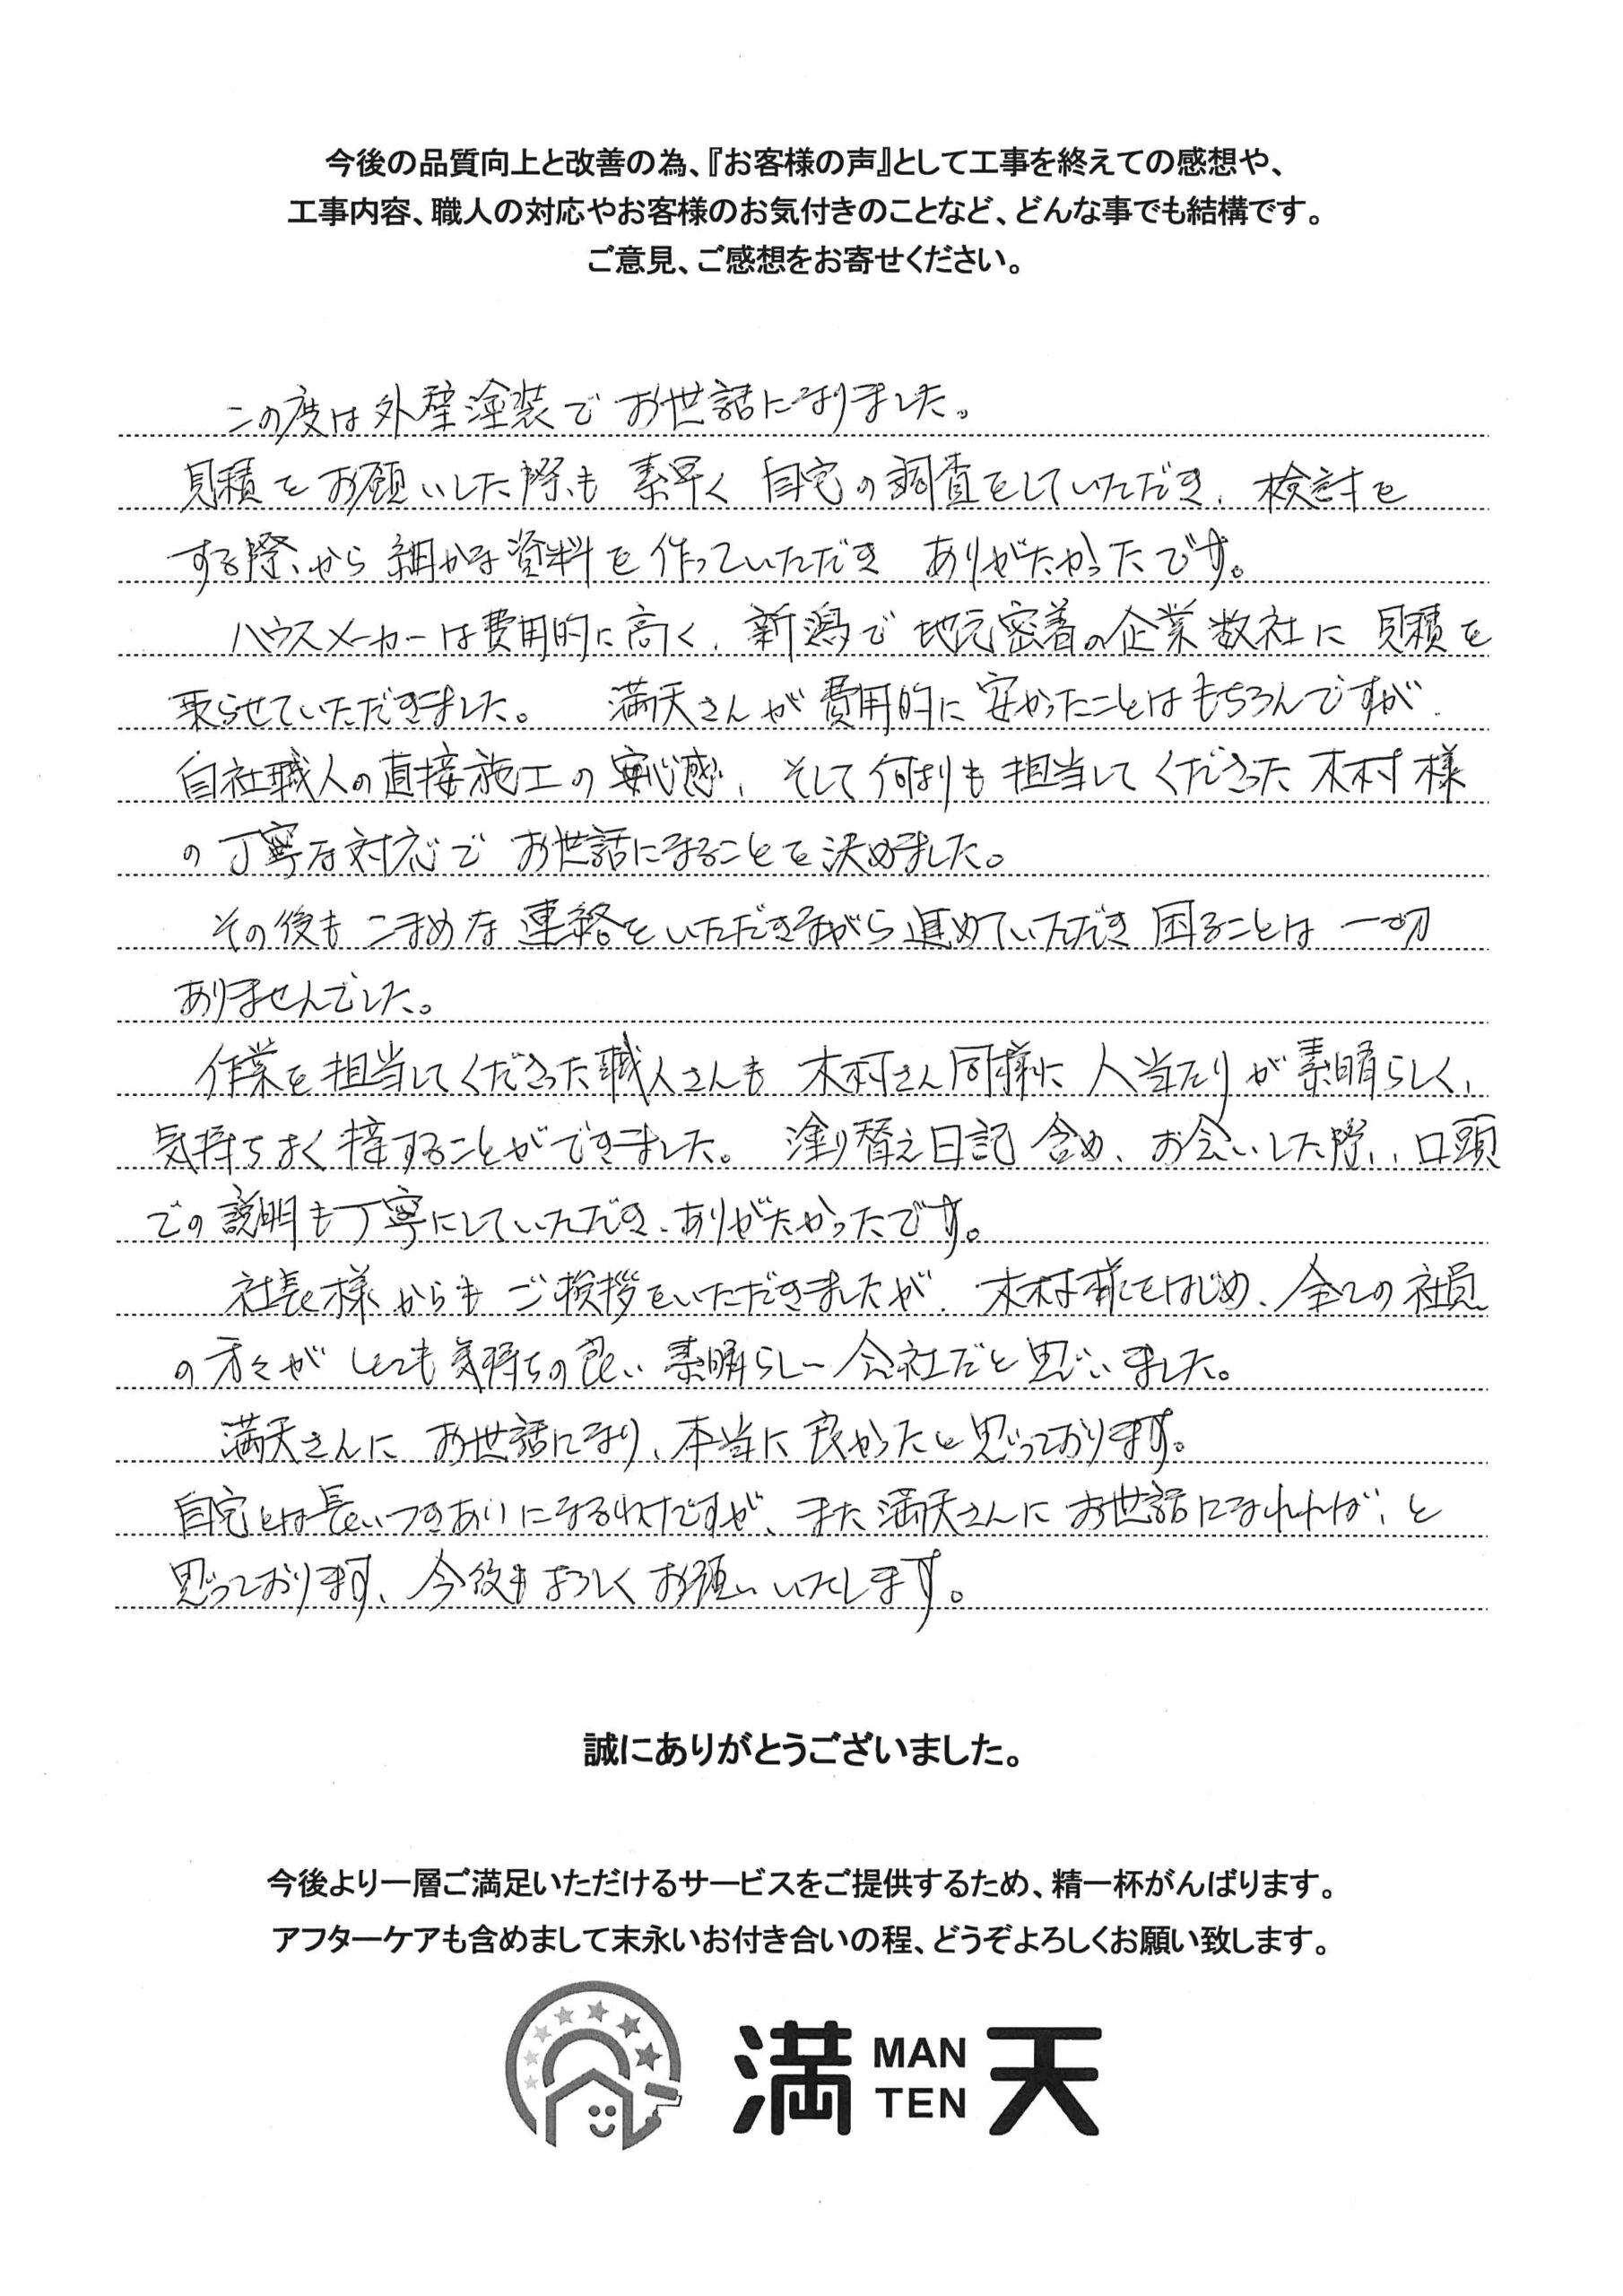 今後の品質向上と改善の為、『お客様の声』として工事を終えての感想や、
工事内容、職人の対応やお客様のお気付きのことなど、どんな事でも結構です。
ご意見、ご感想をお寄せください。
この度は外壁塗装でお世話になりました。
見積をお願いした際も素早く自宅の調査をしていただき、検討を
する際から細かな資料を作っていただきありがたかったです。
ハウスメーカーは費用的に高く、新潟で地元密着の企業数社に見積を
取らせていただきました。満天さんが費用的に安かったことはもちろんですが、
自社職人の直接施工の安心感、そして何よりも担当してくださった木村様
の丁寧な対応でお世話になることを決めました。
その後もこまめな連絡をいただきながら進めていただき困ることは一切
ありませんでした。
作業を担当してくださった職人さんも木村さん同様に人当たりが素晴らしく、
気持ちよく接することができました。塗り替え日記含め、お会いした際、口頭
での説明も丁寧にしていただき、ありがたかったです。
社長様からもご挨拶をいただきましたが、木村様をはじめ、全ての社員
の方々がとても気持ちの良い素晴らしい会社だと思いました。
満天さんにお世話になり、本当に良かったと思っております。
自宅とは長いつきあいになるわけですが、また満天さんにお世話になれれば、と
思っております、今後もよろしくお願いいたします。
誠にありがとうございました。
今後より一層ご満足いただけるサービスをご提供するため、精一杯がんばります。
アフターケアも含めまして末永いお付き合いの程、どうぞよろしくお願い致します。
満 MAN TEN 天